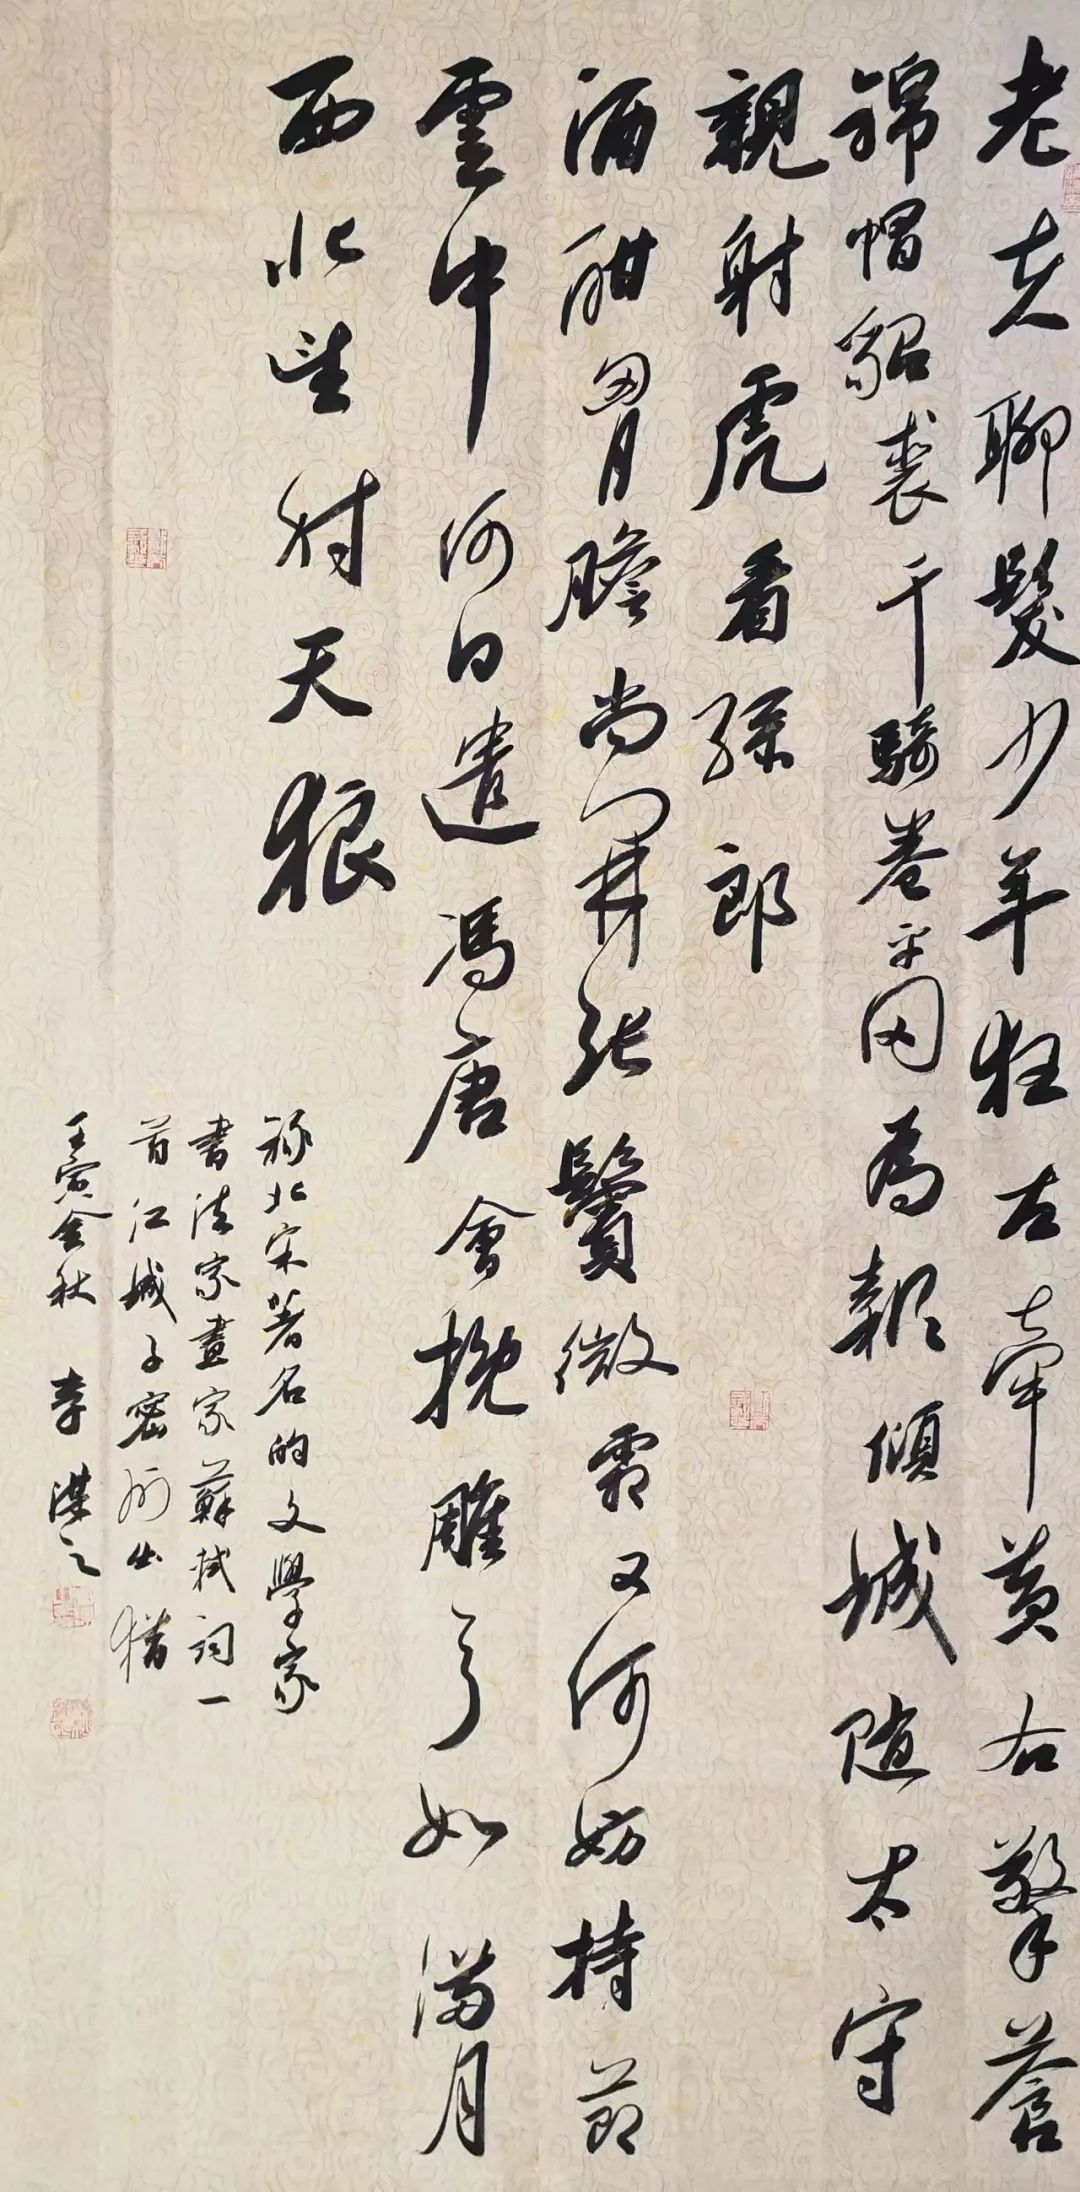 老夫聊髮少年狂左牽黄右擎蒼
錦帽貂裘千騎卷平岡為報傾城随太守
親射虎看孫郎
酒酣胷膽尚開張鬢微霜又何妨持節
雲中何日遣馮唐會挽雕弓如滿月
西北望射天狼
録北宋著名的文學家
書法家畫家蘇軾詞一
首江城子密州出猎
壬寅金秋 李之